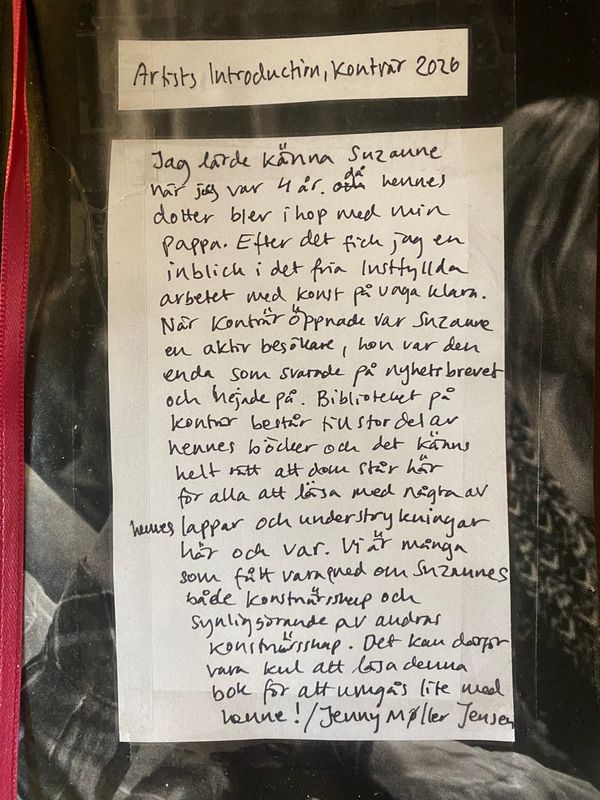 Artists Introduction, Konträr 2026
Jag lärde känna Suzanne
när jag var 4 år. då hennes
dotter blev ihop med min
pappa. Efter det fick jag en
inblick i det fria lustfyllda
arbetet med konst på vaga klara.
När Konträr öppnade var Suzanne
en aktiv besökare, hon var den
enda som svarade på nyhetsbrevet
och hejade på. Biblioteket på
kontrar består till stor del av
hennes böcker och det känns
helt rätt att dom står här
för alla att läsa med några av
hennes lappar och understrykningar
här och var. Vi är många
som fått vara med om Suzannes
både konstnärsskap och
synliggörande av andras
konstnärsskap. Det kan därför
vara kul att läsa denna
bok för att umgås lite med
henne! /Jenny Møller Jensen